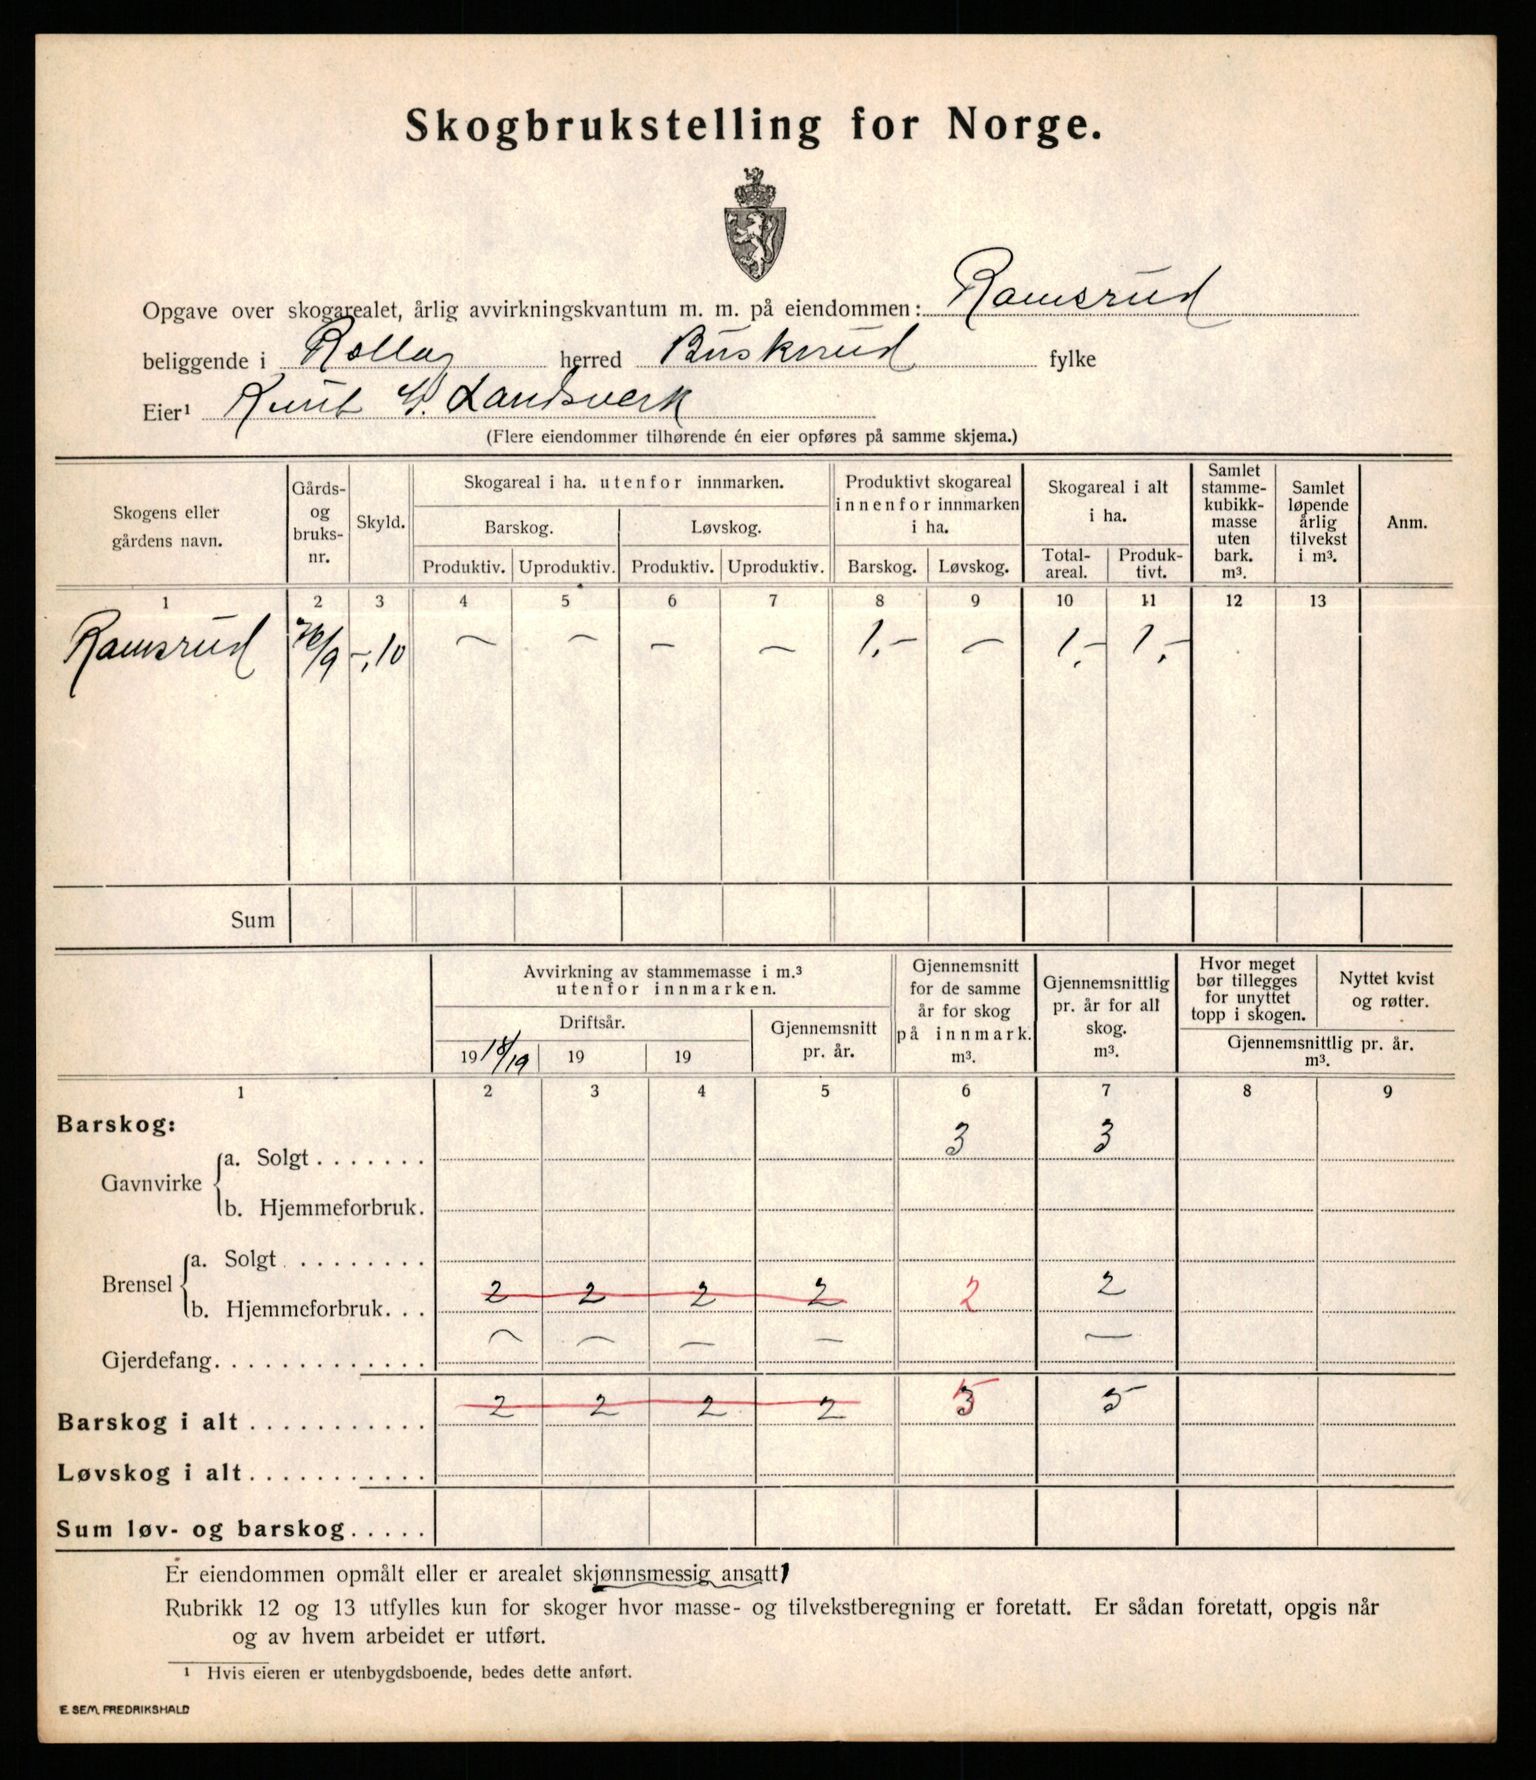 Skogbrukstelling for Norge.
Opgave over skogarealet, årlig avvirkningskvantum m. m. på eiendommen: Ramsrud
beliggende i Rollag herred Buskerud fylke
Eier¹ Knut G. Landsverk
(Flere eiendommer tilhørende én eier opføres på samme skjema.)
Skogens eller gårdens navn. Gårds- og bruks- nr. Skyld. Skogareal i ha. utenfor innmarken. Produktivt skogareal innenfor innmarken i ha. Skogareal i alt i ha. Samlet stamme- kubikk- masse uten bark. m³. Samlet løpende årlig tilvekst i m³. Anm.
Barskog. Løvskog.
Produktiv. Uproduktiv. Produktiv. Uproduktiv. Barskog. Løvskog. Total- areal. Produk- tivt.
1 2 3 4 5 6 7 8 9 10 11 12 13
Ramsrud 76/9 -,10 — — — — 1,- — 1,- 1,-
Sum
Avvirkning av stammemasse i m.³ utenfor innmarken. Gjennemsnitt for de samme år for skog på innmark. m³. Gjennemsnittlig pr. år for all skog. m³. Hvor meget bør tillegges for unyttet topp i skogen. Nyttet kvist og røtter.
Driftsår. Gjennemsnitt pr. år. Gjennemsnittlig pr. år. m³.
19 18/19 19 19
1 2 3 4 5 6 7 8 9
Barskog:
Gavnvirke a. Solgt . . . . . . . 3 3
b. Hjemmeforbruk.
Brensel a. Solgt . . . . . . . .
b. Hjemmeforbruk. . . 2 2 2 2 2 2
Gjerdefang. . . . . . . . . . . . . — — — — —
Barskog i alt . . . . . . . . . . . 2 2 2 2 5 5
Løvskog i alt . . . . . . . . . . .
Sum løv- og barskog . . . . .
Er eiendommen opmålt eller er arealet skjønnsmessig ansatt?
Rubrikk 12 og 13 utfylles kun for skoger hvor masse- og tilvekstberegning er foretatt. Er sådan foretatt, opgis når
og av hvem arbeidet er utført.
¹ Hvis eieren er utenbygdsboende, bedes dette anført.
E. SEM, FREDRIKSHALD